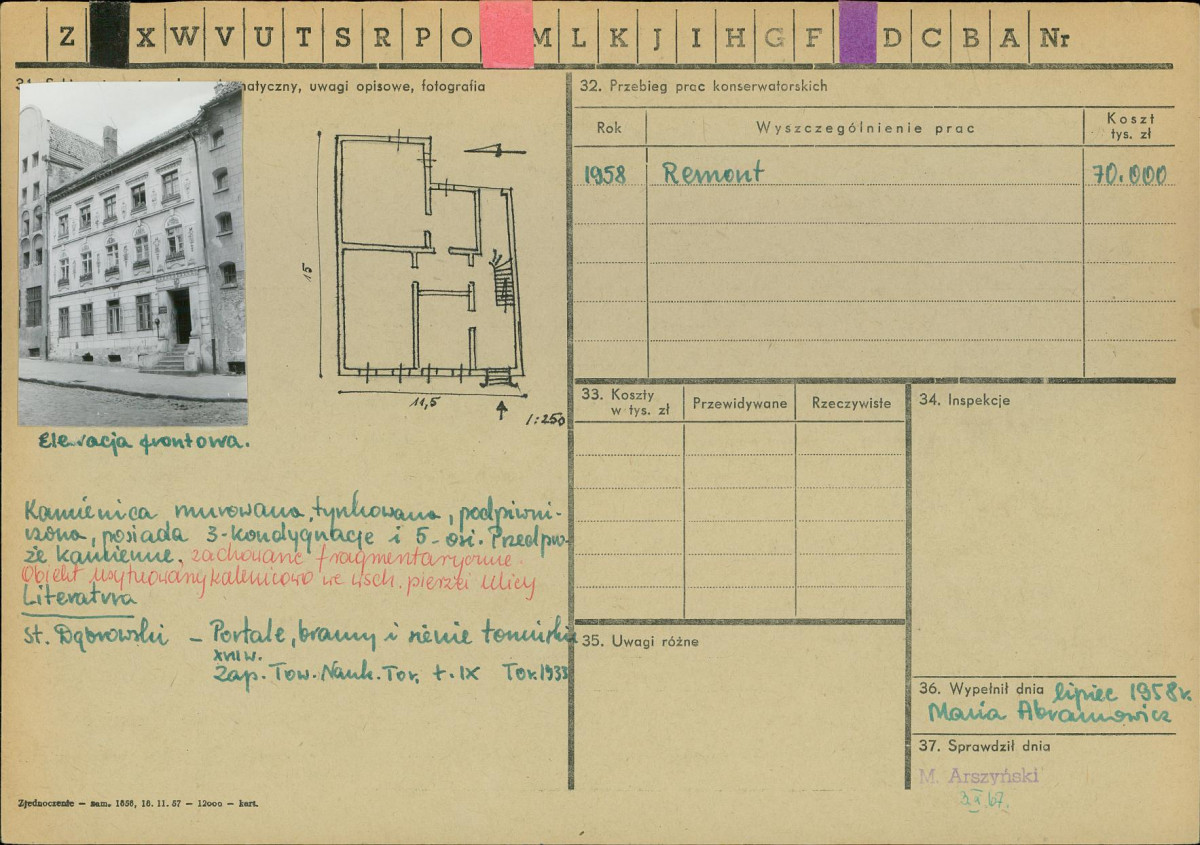 Z X W V U T S R P O M L K J I H G F D C B A Nr
atyczny, uwagi opisowe, fotografia
15
11,5
1:250
Elewacja frontowa.
Kamienica murowana, tynkowana, podpiwni-
czona, posiada 3-kondygnacje i 5-osi. Przedpro-
że kamienne, zachowane fragmentarycznie.
Obiekt usytuowany kalenicowo we wsch. pierzei ulicy
Literatura
St. Dąbrowski – Portale, bramy i sienie toruńskie
XVIII w.
Zap. Tow. Nauk. Tor. t. IX Tor. 1933
Zjednoczenie — zam. 1858, 16. 11. 57 — 12000 — kart.
32. Przebieg prac konserwatorskich
Rok Wyszczególnienie prac Koszt
tys. zł
1958 Remont 70.000
33. Koszty
w tys. zł Przewidywane Rzeczywiste
34. Inspekcje
35. Uwagi różne
36. Wypełnił dnia lipiec 1958 r.
Maria Abramowicz
37. Sprawdził dnia
M. Arszyński
3.X.67.